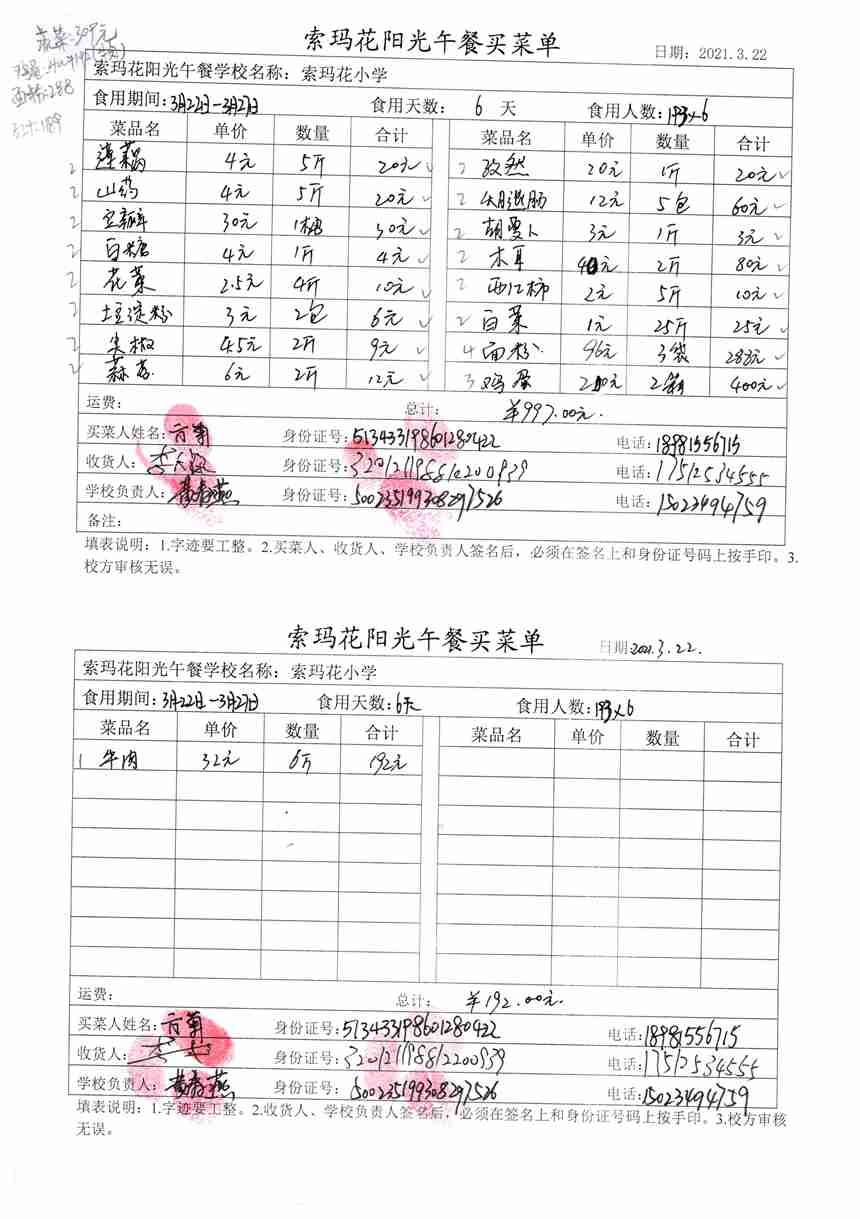 蔬菜:309元
面粉:288
索玛花阳光午餐买菜单
日期：2021.3.22
索玛花阳光午餐学校名称：索玛花小学
食用期间：3月22日-3月27日 食用天数： 6 天 食用人数：193×6
菜品名 单价 数量 合计 菜品名 单价 数量 合计
4元 5斤 20元 孜然 20元 1斤 20元
山药 4元 5斤 20元 火腿肠 12元 5包 60元
豆瓣 30元 1桶 30元 胡萝卜 3元 1斤 3元
白糖 4元 1斤 4元 木耳 40元 2斤 80元
花菜 2.5元 4斤 10元 西红柿 2元 5斤 10元
土豆淀粉 3元 2包 6元 白菜 1元 25斤 25元
尖椒 4.5元 2斤 9元 面粉 96元 3袋 288元
蒜苔 6元 2斤 12元 鸡蛋 200元 2箱 400元
运费： 总计： ¥997.00元.
买菜人姓名： 身份证号：513433198601280422 电话：18981556715
收货人： 身份证号： 电话：17512534555
学校负责人：黄春燕 身份证号：500235199308297526 电话：15023494759
备注：
填表说明：1.字迹要工整。2.买菜人、收货人、学校负责人签名后，必须在签名上和身份证号码上按手印。3.
校方审核无误。
索玛花阳光午餐买菜单
日期:2021.3.22.
索玛花阳光午餐学校名称：索玛花小学
食用期间：3月22日-3月27日 食用天数：6天 食用人数：193×6
菜品名 单价 数量 合计 菜品名 单价 数量 合计
1 牛肉 32元 6斤 192元
运费： 总计： ¥192.00元.
买菜人姓名： 身份证号：513433198601280422 电话：18981556715
收货人： 身份证号： 电话：17512534555
学校负责人：黄春燕 身份证号：500235199308297526 电话：15023494759
填表说明：1.字迹要工整。2.收货人、学校负责人签名后，必须在签名上和身份证号码上按手印。3.校方审核
无误。